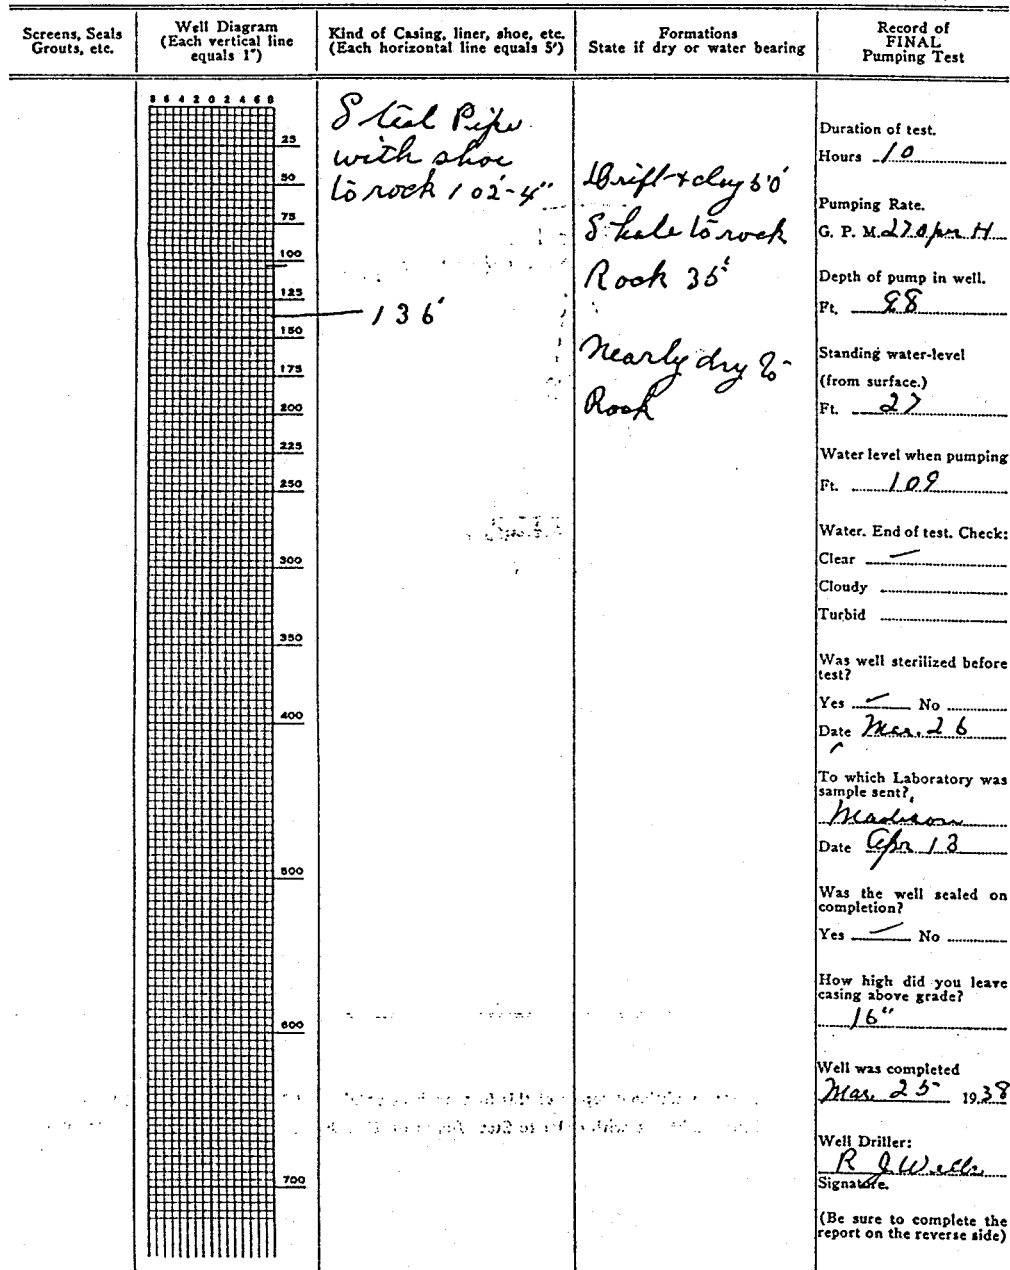 Screens, Seals
Grouts, etc.
Well Diagram
(Each vertical line
equals 1")
Kind of Casing, liner, shoe, etc.
(Each horizontal line equals 5')
Formations
State if dry or water bearing
Record of
FINAL
Pumping Test
8 6 4 2 0 2 4 6 8
25
50
75
100
125
150
175
200
225
250
300
350
400
500
600
700
Steel Pipe
with shoe
to rock 102'-4"
136'
Drift + clay 50'
Shale to rock
Rock 35'
Nearly dry to
Rock
Duration of test.
Hours 10
Pumping Rate.
G. P. M. 270 per H
Depth of pump in well.
Ft. 98
Standing water-level
(from surface.)
Ft. 27
Water level when pumping
Ft. 109
Water. End of test. Check:
Clear ✓
Cloudy
Turbid
Was well sterilized before
test?
Yes ✓ No
Date Mar. 26
To which Laboratory was
sample sent?
Madison
Date Apr 13
Was the well sealed on
completion?
Yes ✓ No
How high did you leave
casing above grade?
16"
Well was completed
Mar. 25 1938
Well Driller:
R J
Signature.
(Be sure to complete the
report on the reverse side)